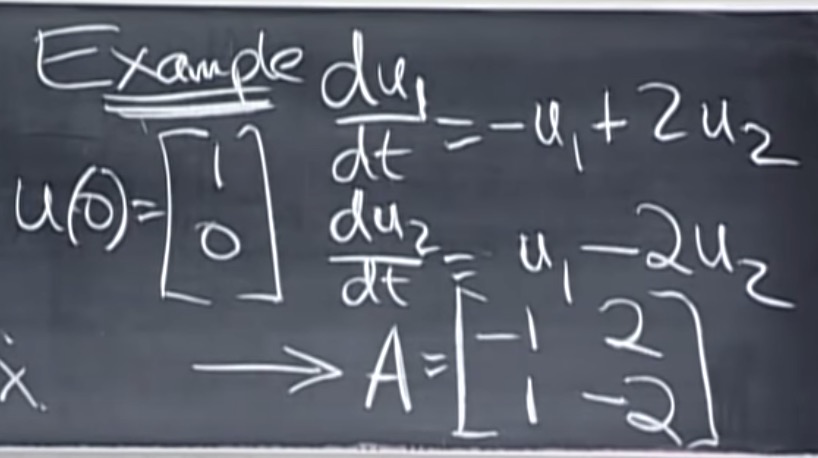 Example
du₁/dt = -u₁ + 2u₂
u(0) = [1 0]
du₂/dt = u₁ - 2u₂
→ A = [-1 2
1 -2]